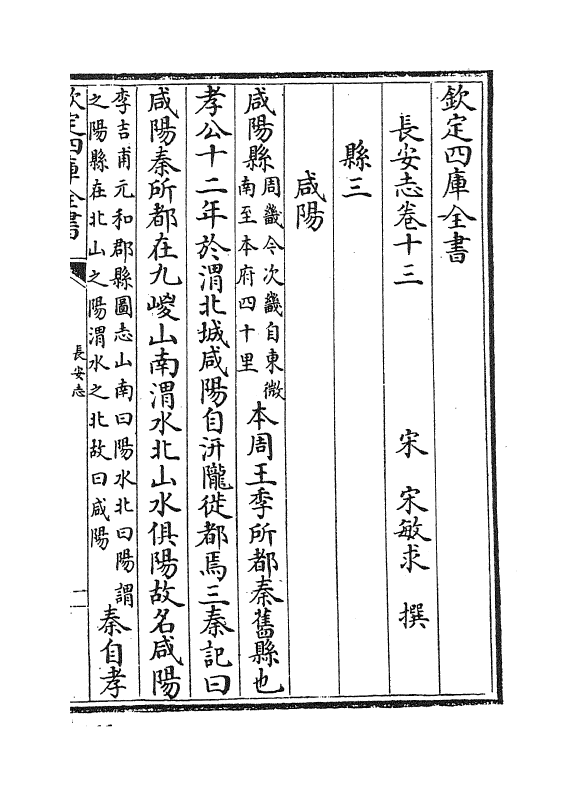 欽定四庫全書
長安志卷十三
宋 宋敏求 撰
縣三
咸陽
咸陽縣周畿今次畿自東微
南至本府四十里本周王季所都秦舊縣也
孝公十二年於渭北城咸陽自汧隴徙都焉三秦記曰
咸陽秦所都在九嵕山南渭水北山水俱陽故名咸陽
李吉甫元和郡縣圖志山南曰陽水北曰陽謂
之陽縣在北山之陽渭水之北故曰咸陽秦自孝
欽定四庫全書
長安志